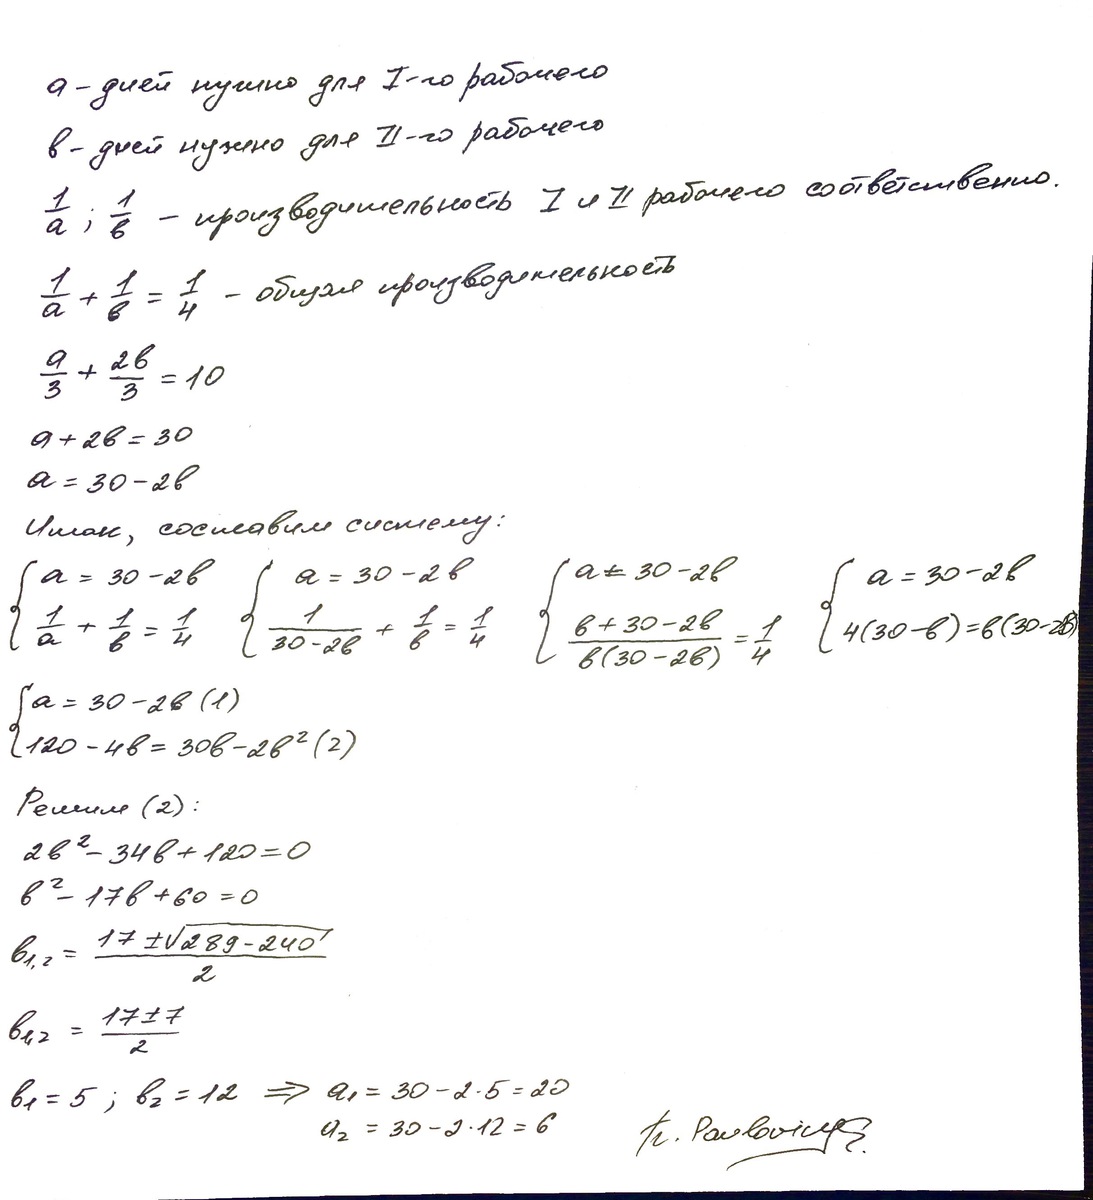 а – дней нужно для I-го рабочего
в – дней нужно для II-го рабочего
1/а ; 1/в – производительность I и II рабочего соответственно.
1/а + 1/в = 1/4 – общая производительность
а/3 + 2в/3 = 10
а + 2в = 30
а = 30 – 2в
Итак, составим систему:
{ а = 30 – 2в { а = 30 – 2в { а = 30 – 2в { а = 30 – 2в
1/а + 1/в = 1/4 1/(30 – 2в) + 1/в = 1/4 (в + 30 – 2в)/(в(30 – 2в)) = 1/4 4(30 – в) = в(30 – 2в)
{ а = 30 – 2в (1)
120 – 4в = 30в – 2в² (2)
Решим (2):
2в² – 34в + 120 = 0
в² – 17в + 60 = 0
в₁,₂ = (17 ± √(289 – 240))/2
в₁,₂ = (17 ± 7)/2
в₁ = 5 ; в₂ = 12 ⇒ а₁ = 30 – 2·5 = 20
а₂ = 30 – 2·12 = 6